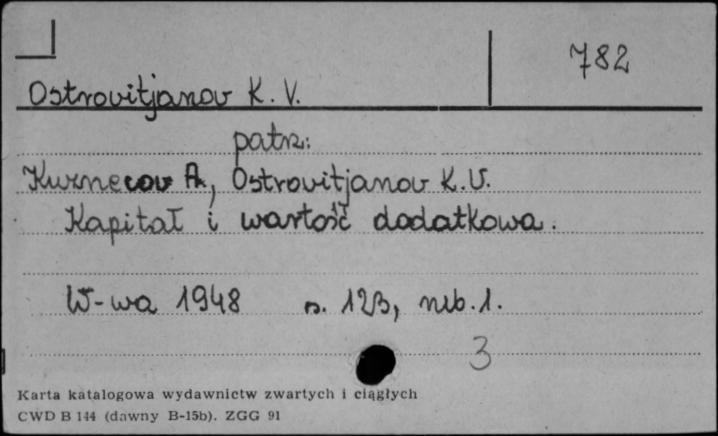 782
Ostrovitjanov K. V.
patrz:
Kuznecov A., Ostrovitjanov K.V.
Kapitał i wartość dodatkowa.
W-wa 1948 s. 123, nlb. 1.
3
Karta katalogowa wydawnictw zwartych i ciągłych
CWD B 144 (dawny B-15b). ZGG 91